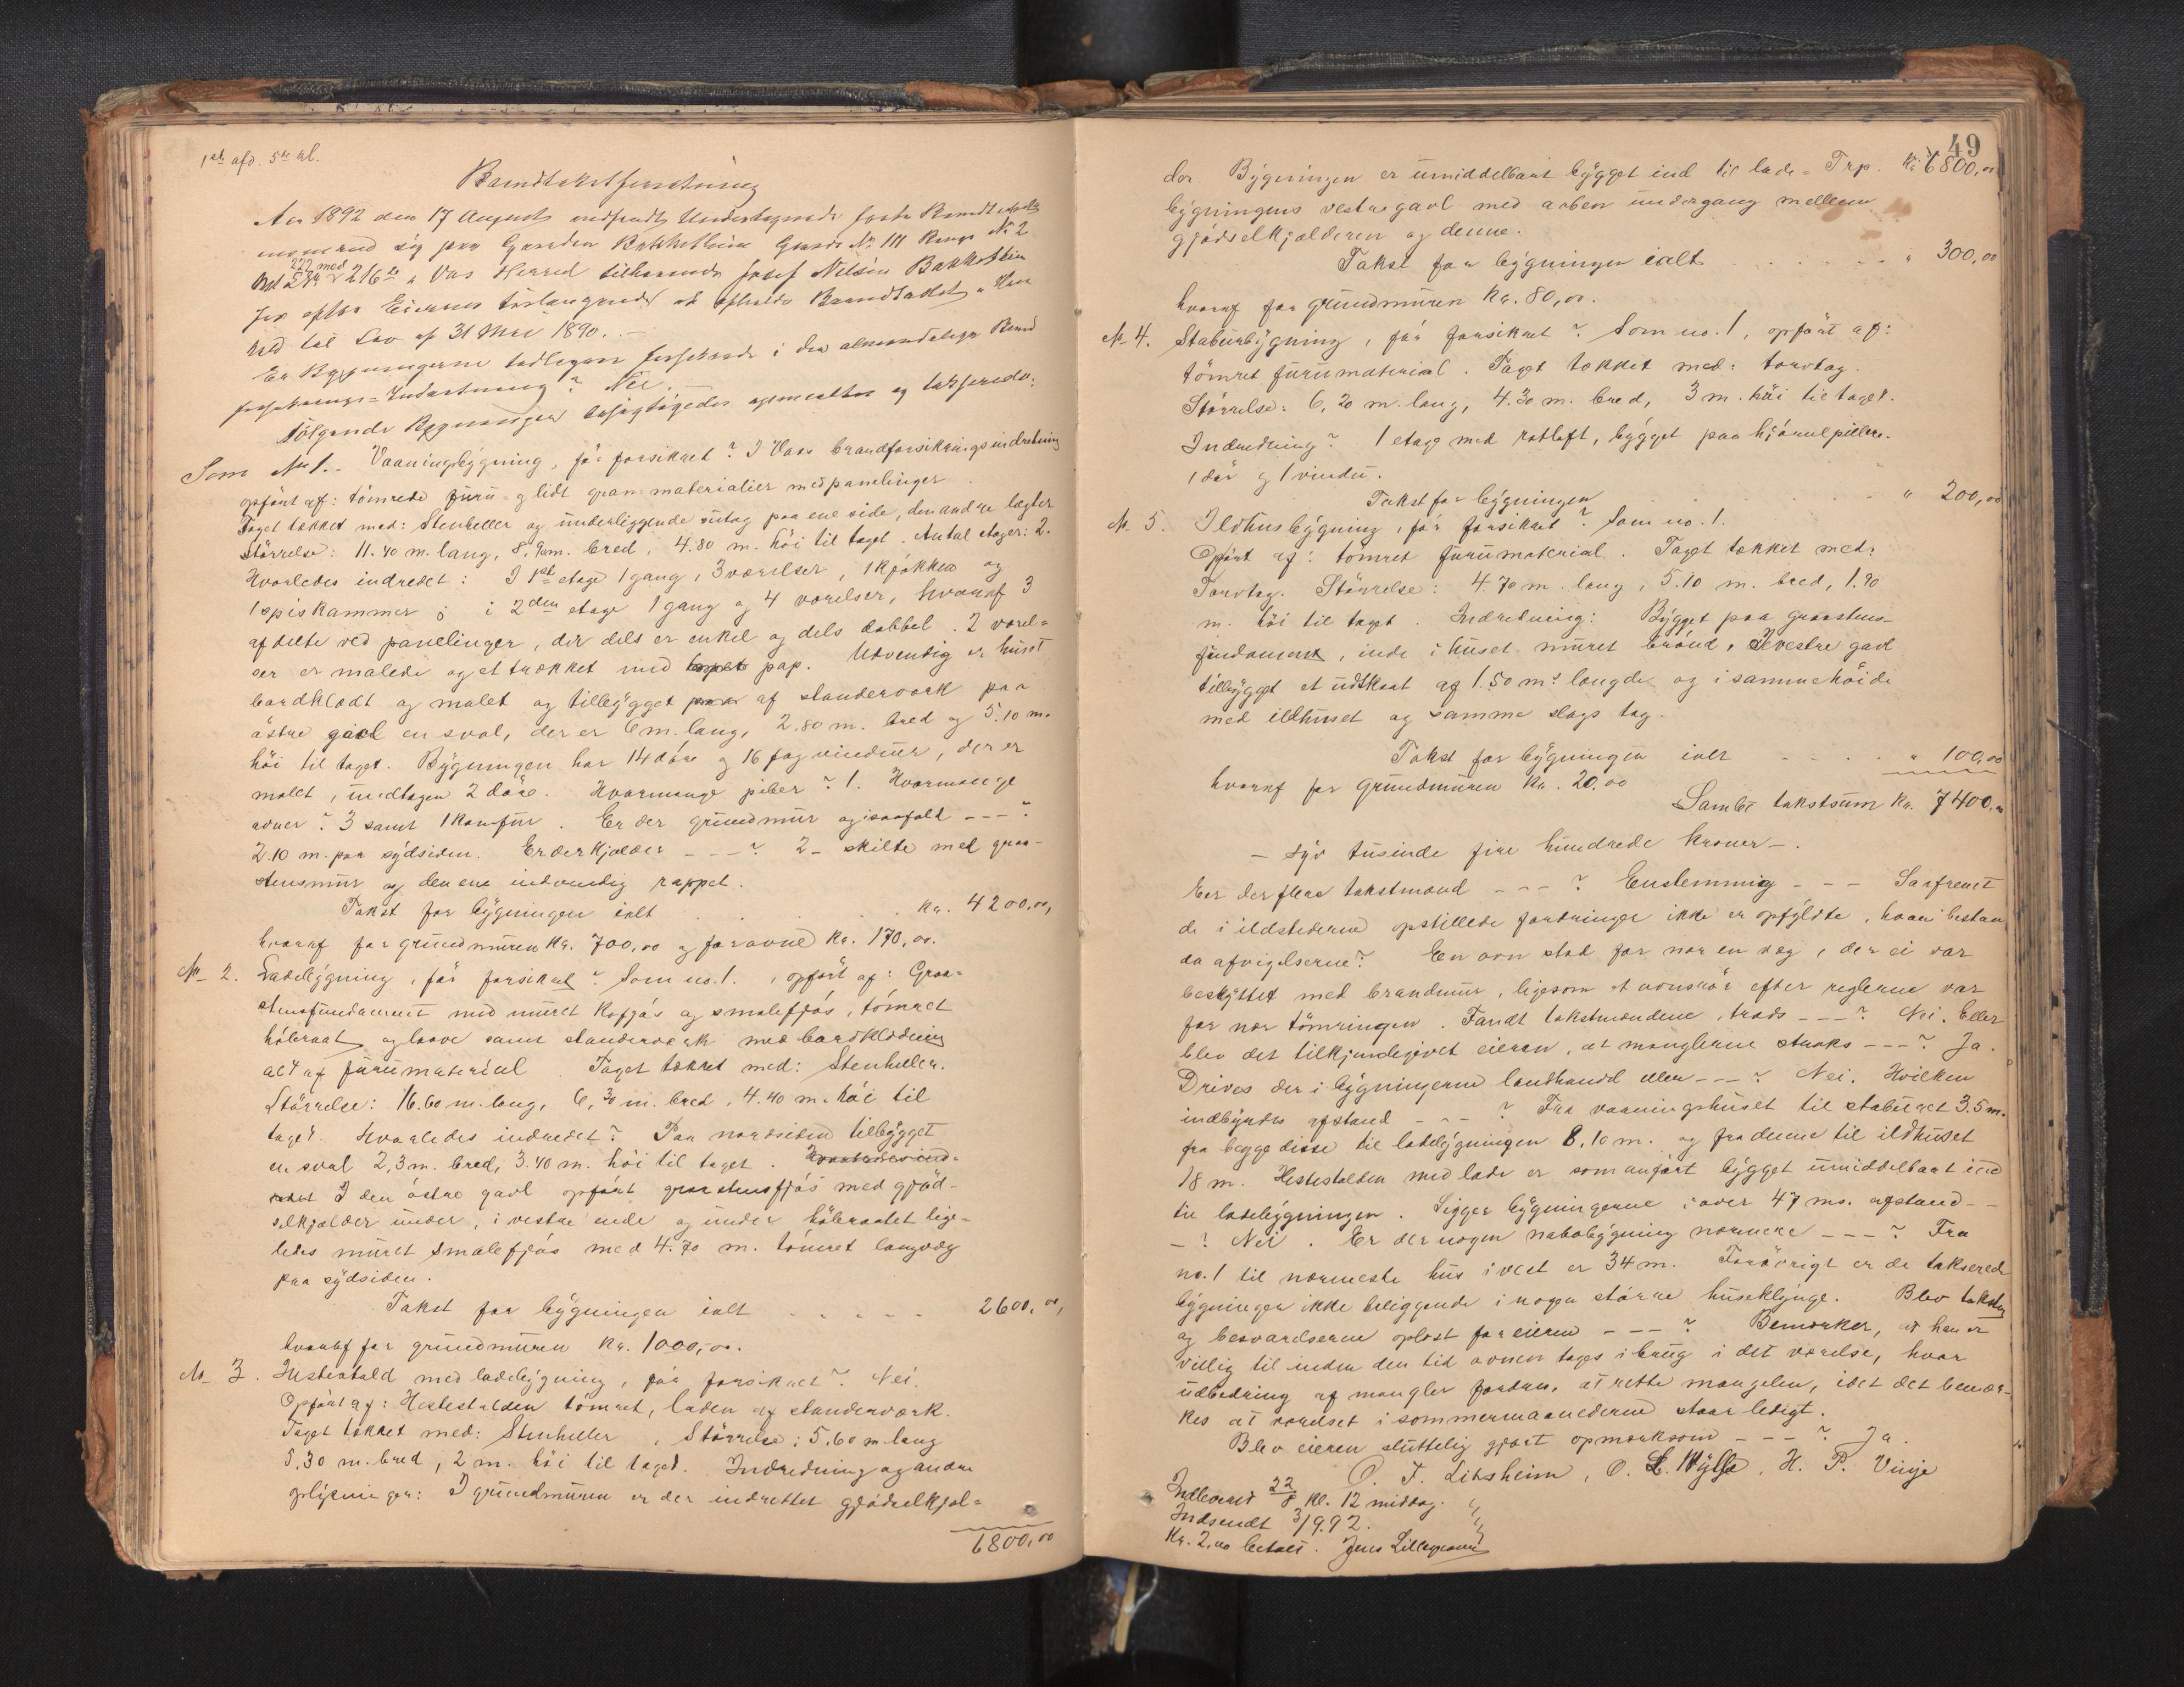 1ste afd. 5te kl.
Brandtakstforretning
Aar 1892 den 17 August indfandt Undertegnede faste Brandtakstmænd
sig paa Gaarden Bakkethun Gaards No 111 Brugs No 2
222 med
216 Vos Herred tilhørende Josef Nilsen Bakkethun
for efter Eierens Forlangende at afholde Brandtakst i Hen
hold til Lov af 31 Mai 1890.
Er Bygningerne tidligere forsikrede i den almindelige Brand
forsikrings-Indretning? Nei.
Følgende Bygninger besigtigedes opmaaltes og taxeredes:
Som No 1. Vaaningsbygning, før forsikret? I Voss brandforsikringsindretning
opført af: tømrede furu- og lidt gran-materialier med panelinger
Taget tækket med: Stenheller og underliggende sutag paa ene side, den andre lægter
Størrelse: 11.40 m. lang, 8,90 m. bred, 4.80 m. høi til taget. Antal etager: 2.
Hvorledes indredet: I 1ste etage 1 gang, 3 værelser, 1 kjøkken og
1 spiskammer; i 2den etage 1 gang og 4 værelser, hvoraf 3
afdelte ved panelinger, der dels er enkel og dels dobbel. 2 værel-
ser er malede og et trækket med tapet pap. Udvendig er huset
bordklædt og malet og tilbygget paa af standerværk paa
østre gavl en sval, der er 6 m. lang, 2.80 m. bred og 5.10 m.
høi til taget. Bygningen har 14 døre og 16 fag vinduer, der er
malet, undtagen 2 døre. Hvormange piber? 1. Hvormange
ovner? 3 samt 1 komfur. Er der grundmur og isaafald - - - ?
2.10 m. paa sydsiden. Er der kjælder - - - ? 2 - skilte med graa-
stensmur og den ene indvendig rappet.
Takst for bygningen ialt . . . . kr. 4200,00,
hvoraf for grundmuren kr. 700,00 og for ovne kr. 170,00.
No 2. Ladebygning, før forsikret? Som no. 1. , opført af: Graa-
stensfundament med muret kofjøs og smalefjøs, tømret
høbraat og laave samt standerverk med bordklædning
alt af furumaterial. Taget tækket med: Stenheller.
Størrelse: 16.60 m. lang, 6,30 m. bred, 4.40 m. høi til
taget. Hvorledes indredet? Paa nordsiden tilbygget
en sval 2,3 m. bred, 3.40 m. høi til taget. Hvorledes ind-
redet I den østre gavl opført graastensfjøs med gjød-
selkjælder under, i vestre ende og under høbraatet lige-
ledes muret smalefjøs med 4.70 m. tømret langvæg
paa sydsiden.
Takst for bygningen ialt . . . . . 2600,00,
hvoraf for grundmuren kr. 1000,00.
No 3. Hestestald med ladebygning, før forsikret? Nei.
Opført af: Hestestalden tømret, laden af standerværk.
Taget tækket med: Stenheller, Størrelse: 5.60 m. lang
5.30 m. bred, 2 m. høi til taget. Indredning og andre
oplysninger: I grundmuren er der indrettet gjødselkjæl-
6800,00
49
der. Bygningen er umiddelbart bygget ind til lade- Trp kr. 6800,00
bygningens vestre gavl med aaben undergang mellem
gjødselkjælderen og denne.
Takst for bygningen ialt . . . . . . " 300,00
hvoraf for grundmuren kr. 80,00.
No 4. Staburbygning, før forsikret? Som no. 1, opført af:
tømret furumaterial. Taget tækket med: torvtag.
Størrelse: 6,20 m. lang, 4.30 m. bred, 3 m. høi til taget.
Indredning? 1 etage med rotloft, bygget paa hjørnepillere.
1 dør og 1 vindu.
Takst for bygningen . . . . . " 200,00
No 5. Ildhusbygning, før forsikret? Som no. 1.
Opført af: tømret furumaterial. Taget tækket med:
Torvtag. Størrelse: 4.70 m. lang, 5.10 m. bred, 1.90
m. høi til taget. Indredning: Bygget paa graastens-
fundament, inde i huset muret brønd, I vestre gavl
tilbygget et udskaat af 1.50 ms længde og i samme høide
med ildhuset og samme slags tag.
Takst for bygningen ialt . . . . " 100,00
hvoraf for grundmuren kr. 20.00
Samlet takstsum kr. 7400,00
- syv tusinde fire hundrede kroner -.
Er der flere takstmænd - - - ? Enstemmig - - - Saafremt
de i ildstederne opstillede fordringer ikke er opfyldte, hvori bestaar
da afvigelserne? En ovn stod for nær en væg, der ei var
beskyttet med brandmur, ligesom et ovnsrør efter reglerne var
for nær tømringen. Fandt takstmændene, trods - - - ? Nei. Eller
blev det tilkjendegivet eieren, at manglerne straks - - - ? Ja.
Drives der i bygningerne landhandel eller - - - ? Nei. Hvilken
indbyrdes afstand - - - ? Fra vaaningshuset til staburet 3.5 m.
fra begge disse til ladebygningen 8,10 m. og fra denne til ildhuset
18 m. Hestestalden med lade er som anført bygget umiddelbart ind
til ladebygningen. Ligger bygningerne i over 47 ms. afstand - -
- ? Nei. Er der nogen nabobygning nærmere - - - ? Fra
no. 1 til nærmeste hus i vest er 34 m. Forøvrigt er de takserede
bygninger ikke beliggende i nogen større huseklynge. Blev taksten
og besvarelserne oplæst for eieren - - - ? Bemærker, at han er
villig til inden den tid ovnen tages i brug i det værelse, hvor
udbedring af mangler fordres, at rette mangelen, idet det bemær-
kes at værelset i sommermaanederne staar ledigt.
Blev eieren sluttelig gjort opmærksom - - - ? Ja.
O. T. Lirsheim, O. L. Hylle, H. P. Vinje
Indleveret 22/8 kl. 12 middag.
Indsendt 3/9.92.
Kr. 2,00 betalt. Jens Lillegraven